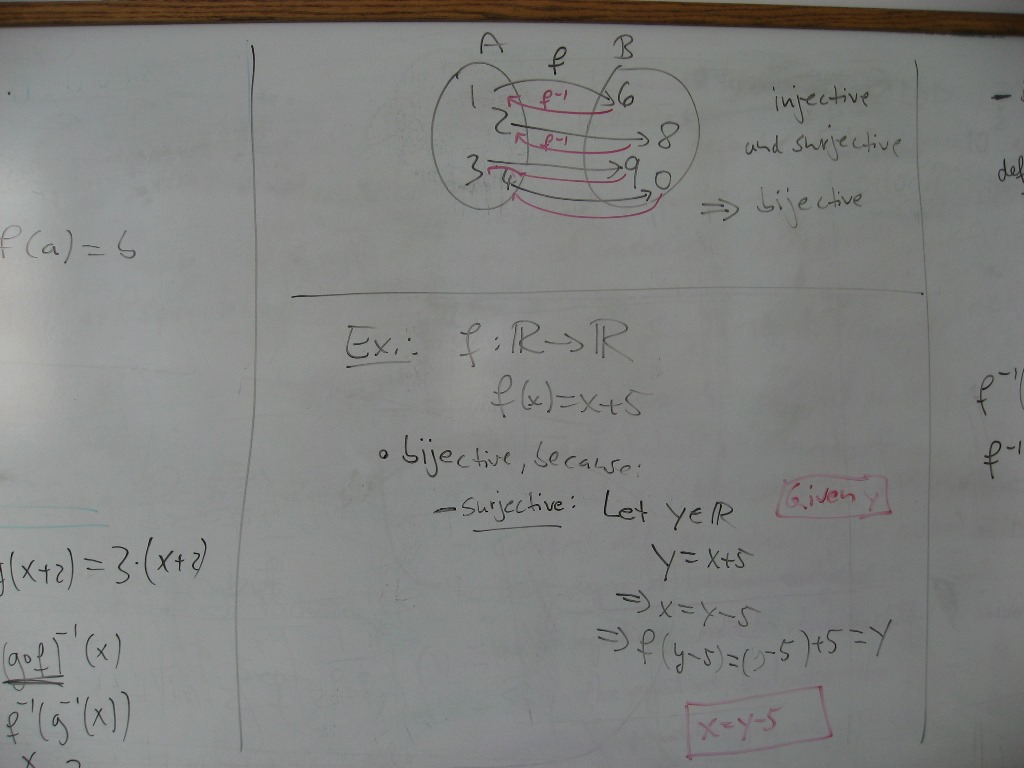 f(a) = b
g(x+2) = 3·(x+2)
(g∘f)⁻¹(x)
f⁻¹(g⁻¹(x))
A f B
1 f⁻¹ 6
2 f⁻¹ 8
3 9
4 0
injective
and surjective
⇒ bijective
Ex.: f: ℝ → ℝ
f(x) = x+5
• bijective, because:
- surjective: Let y∈ℝ
Given y
y = x+5
⇒ x = y-5
⇒ f(y-5) = (y-5)+5 = y
x = y-5
def
f⁻¹(
f⁻¹